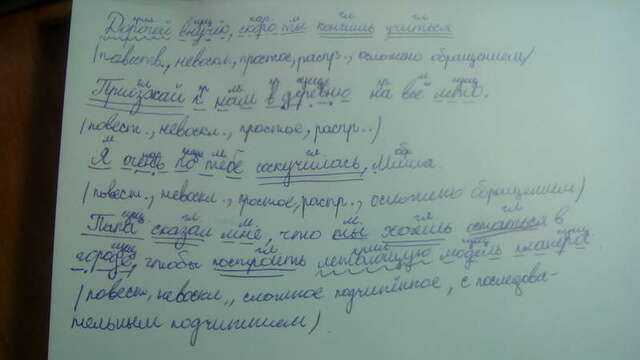 Дорогой внучок, скоро ты кончишь учиться
(повеств., невоскл., простое, распр., осложнено обращением)
Приезжай к нам в деревню на всё лето.
(повест., невоскл., простое, распр..)
Я очень по тебе соскучилась, Миша.
(повест., невоскл., простое, распр., осложнено обращением)
Папа сказал мне, что ты хочешь остаться в
городе, чтобы построить летающую модель планера
(повест, невоскл,, сложное подчинённое, с последова-
тельным подчинением)